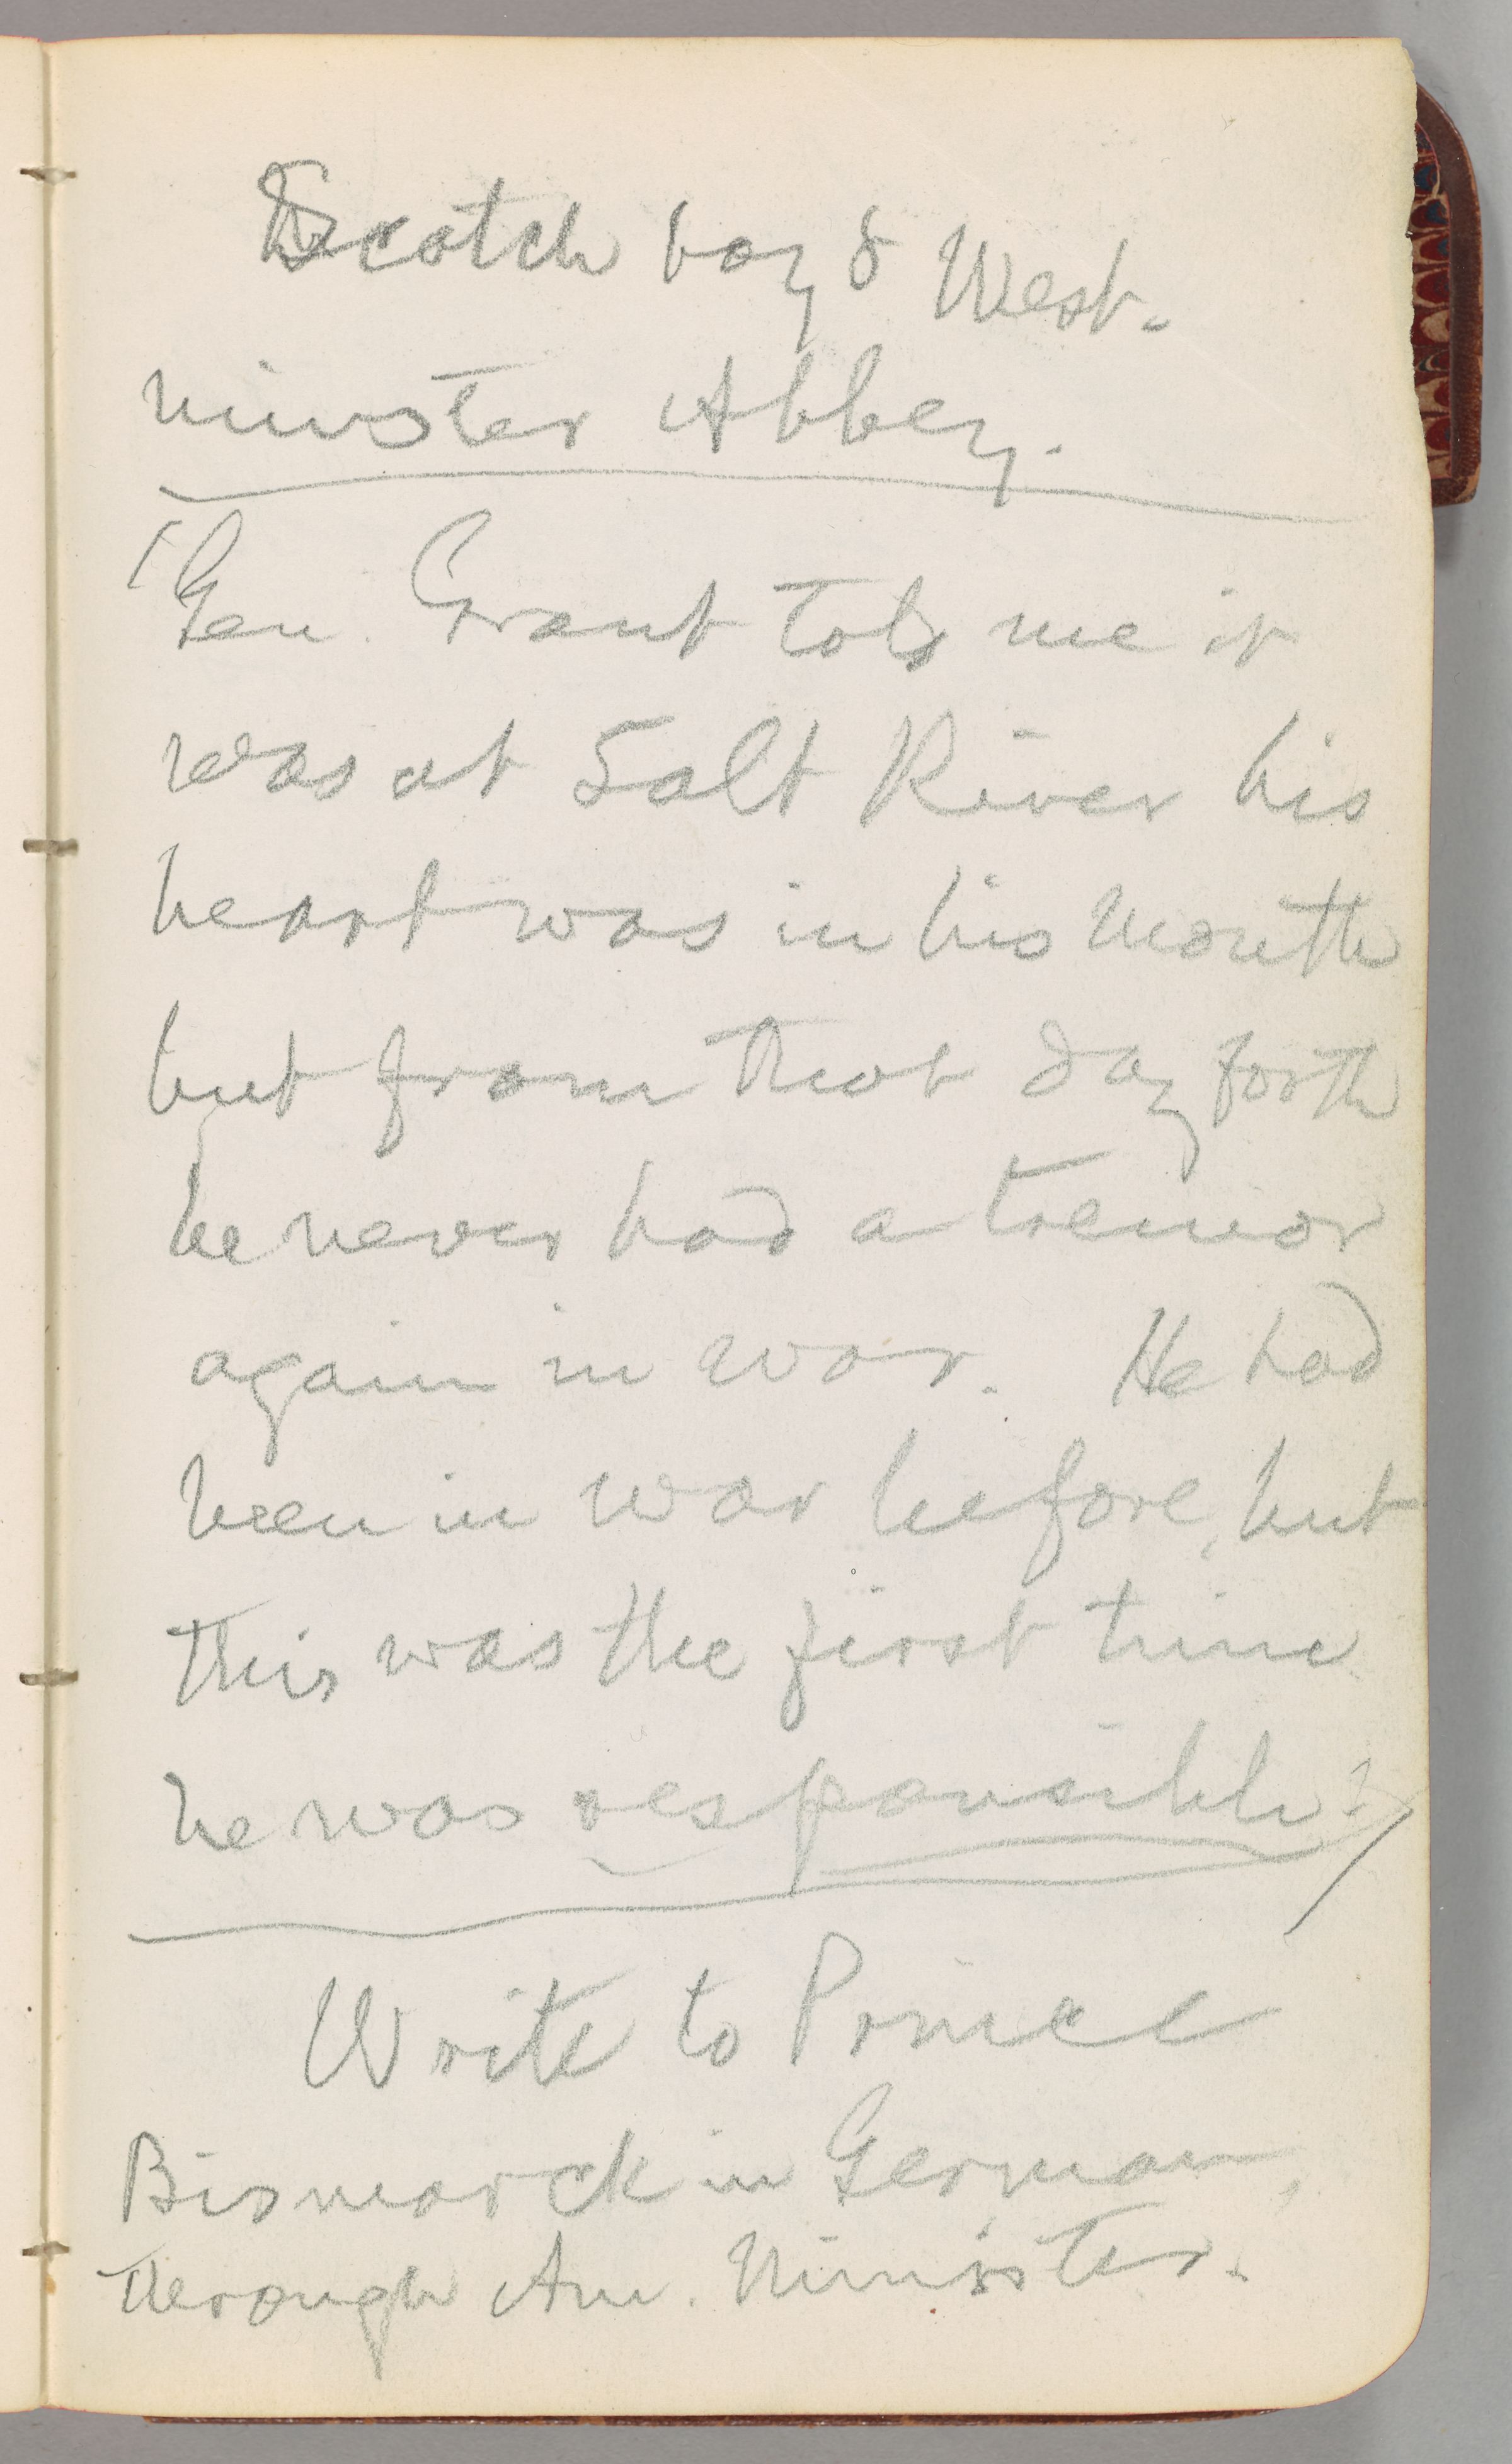 Scotch boy & West-
minster Abbey.
(Gen. Grant told me it
was at Salt River his
heart was in his mouth
but from that day forth
he never had a tremor
again in war. He had
been in war before, but
this was the first time
he was responsible.)
Write to Prince
Bismarck in German,
through Am. Minister.